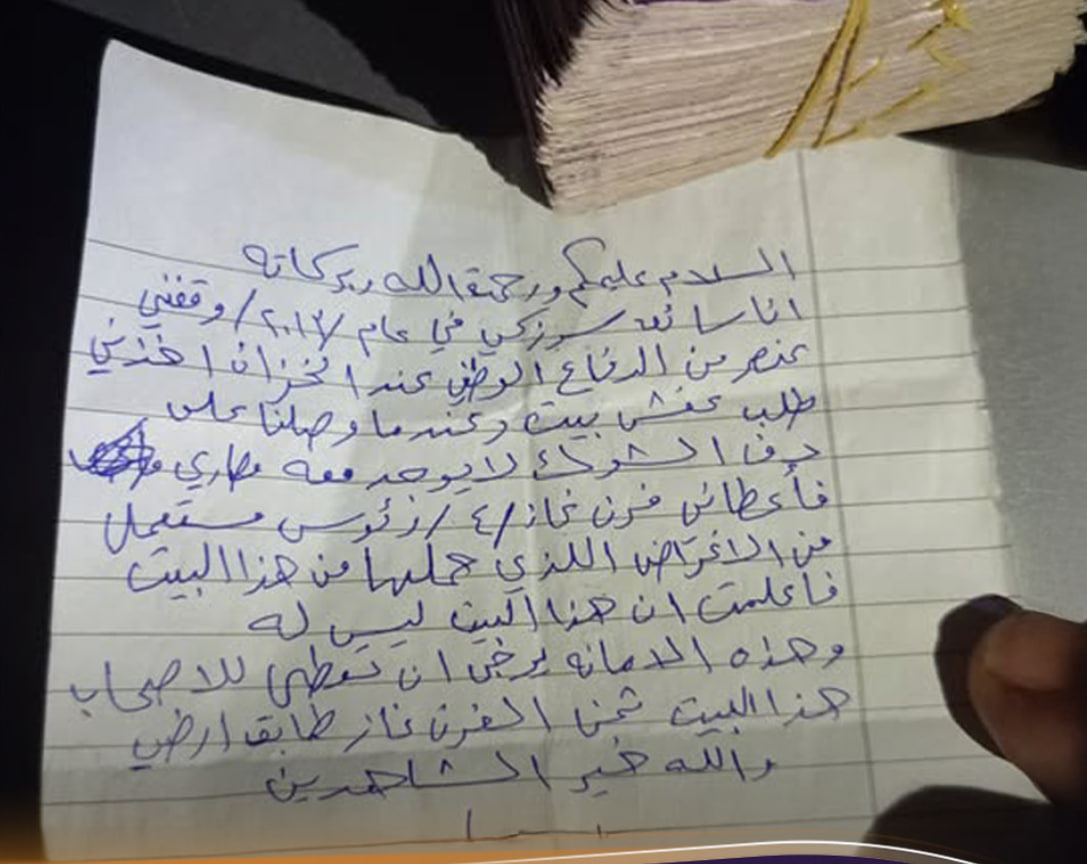 السلام عليكم ورحمة الله وبركاته
انا سائق سوزكي في عام /٢٠١٣/ وقفني
عنصر من الدفاع الوطني عند الخزان اخذني
طلب عفش بيت وعندما وصلنا على
دف الشوك لا يوجد معه مصاري
فأعطاني فرن غاز /٤/ رئوس مستعمل
من الاغراض اللذي حملها من هذا البيت
فاعلمت ان هذا البيت ليس له
وهذه الامانه يرجى ان تعطى للاصحاب
هذا البيت ثمن الفرن غاز طابق ارضي
والله خير الشاهدين